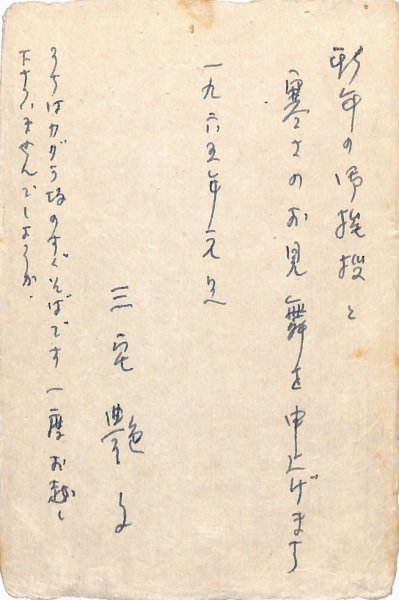 新年の御挨拶と
寒さのお見舞を申上げます
一九六五年元旦
三宅艶子
うちはかがう坂のすぐそばです 一度お越し
下さいませんでしょうか.